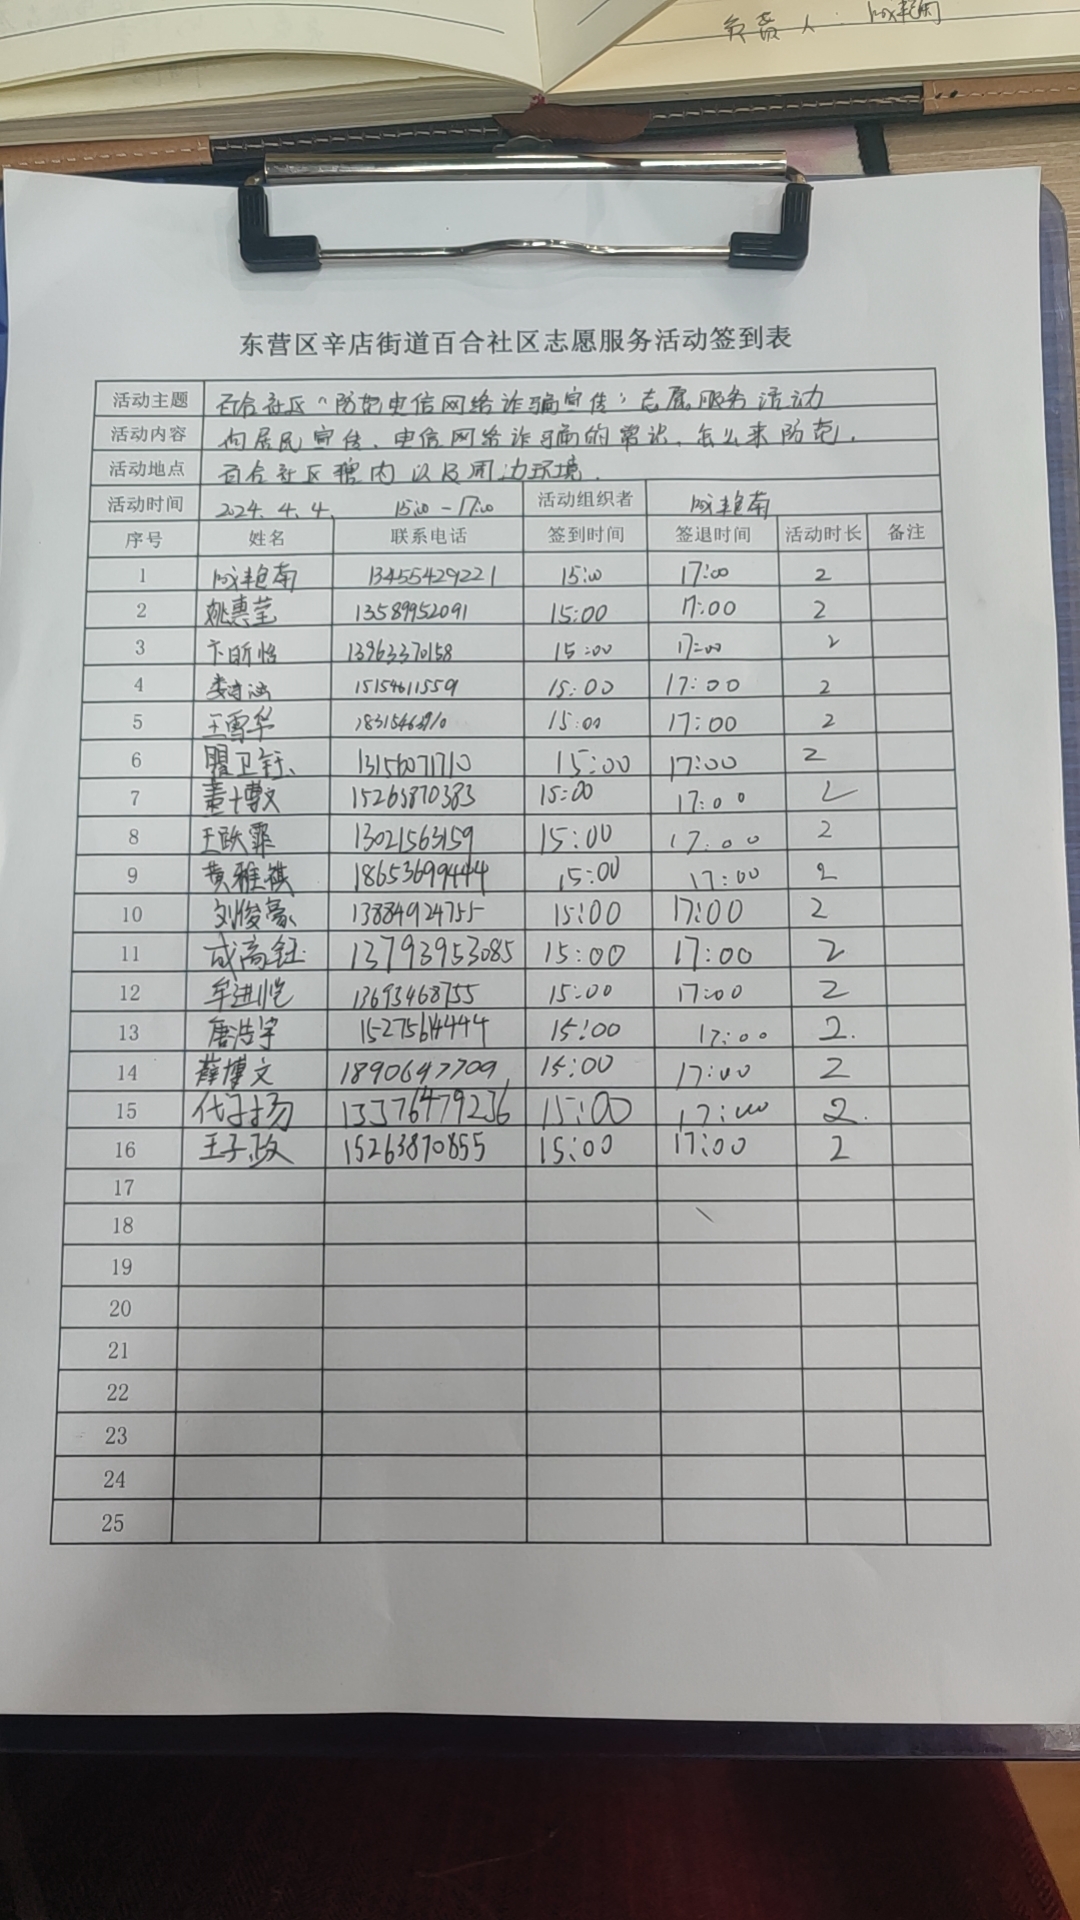 负责人：
东营区辛店街道百合社区志愿服务活动签到表
活动主题 百合社区“防范电信网络诈骗宣传”志愿服务活动
活动内容 向居民宣传、电信网络诈骗的常识、怎么来防范.
活动地点 百合社区辖内以及周边环境.
活动时间 2024.4.4. 15:00-17:00 活动组织者
序号 姓名 联系电话 签到时间 签退时间 活动时长 备注
1 13455429221 15:00 17:00 2
2 姚惠莹 13589952091 15:00 17:00 2
3 卞昕怡 13963370158 15:00 17:00 2
4 15154611559 15:00 17:00 2
5 王雪华 15:00 17:00 2
6 13156071710 15:00 17:00 2
7 董博文 15265870383 15:00 17:00 2
8 王跃霏 13021563159 15:00 17:00 2
9 黄雅祺 18653699444 15:00 17:00 2
10 刘俊豪 13884924755 15:00 17:00 2
11 成高钰 13793953085 15:00 17:00 2
12 牟进恺 13693468755 15:00 17:00 2
13 唐浩宇 15275614444 15:00 17:00 2.
14 薛博文 18906477709 15:00 17:00 2
15 代子扬 13376479236 15:00 17:00 2.
16 王子政 15263870855 15:00 17:00 2
17
18
19
20
21
22
23
24
25